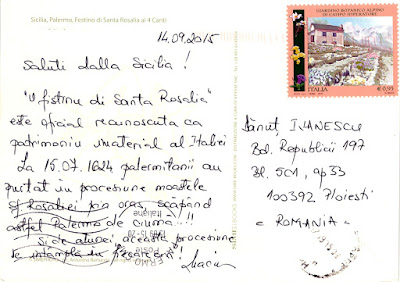 Sicilia, Palermo, Festino di Santa Rosalia ai 4 Canti
14.09.2015
Saluti dalla Sicilia !
"U fistinu di Santa Rosalia"
este oficial recunoscuta ca
patrimoniu imaterial al Italiei
La 15.07.1624 palermitanii au
purtat in procesiune moastele
sf Rosaliei prin oras, scapând
astfel Palermo de ciuma !!!
Si de atunci aceasta procesiune
se intampla in fiecare an!
GIARDINO BOTANICO ALPINO
DI CAMPO IMPERATORE
ITALIA € 0,95
Dănuț IVANESCU
Bd. Republicii 197
Bl. 5C1, ap 33
100392 Ploiesti
- ROMANIA -
Poste
Italiane